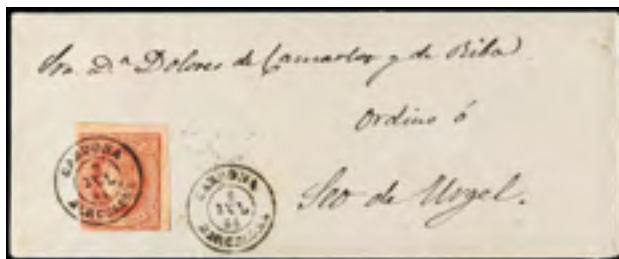 Sra. D.ª Dolores de Camarlor y de Riba
Ordino ó
Seo de Urgel.
CARDONA
JUL
BARCELONA
CARDONA
JUL
BARCELONA